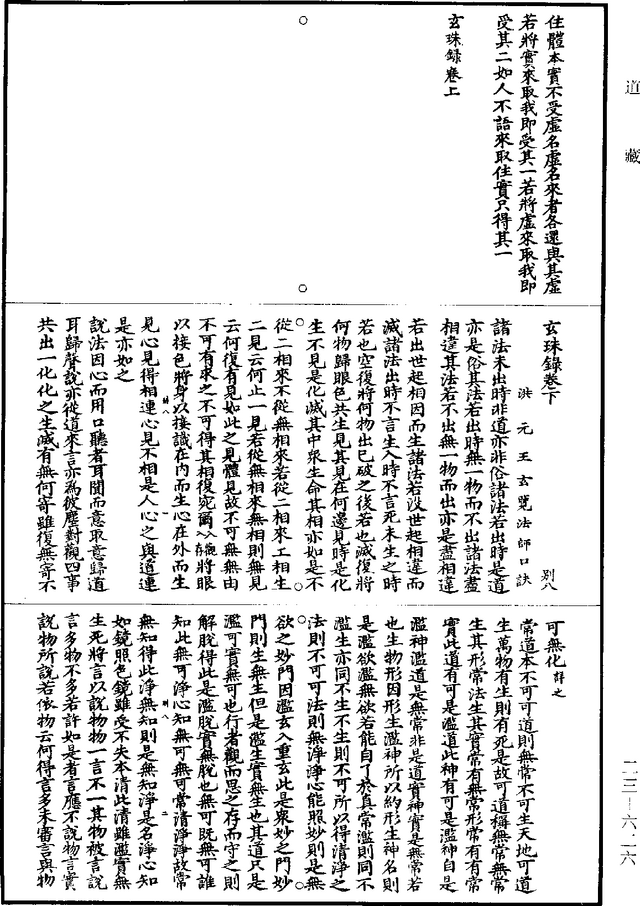 道藏
住體本實不受虛名虛名來者各還與其虛
若將實來取我即受其一若將虛來取我即
受其二如人不語來取住實只得其一
玄珠録卷上
玄珠録卷下
别八
洪元王玄覽法師口訣
諸法未出時非道亦非俗諸法若出時是道
亦是俗其法若出時無一物而不出諸法盡
相違其法若不出無一物而出亦是盡相違
若出世起相因而生諸法若没世起相違而
滅諸法出時不言生入時不言死未生之時
若也空復將何物出已破之後若也滅復將
何物歸眼色共生見其見在何邊見時是化
生不見是化滅其中衆生命其相亦如是不
從二相來不從無相來若從二相來二相生
二見云何止一見若從無相來無相則無見
云何復有見如此之見體見故不可無無由
不可有求之不可得其相復宛爾將眼
以接色將身以接識在内而生心在外而生
見心見得相連心見不相是人心之與道連
是亦如之
說法因心而用口聽者耳聞而意取意歸道
耳歸聲說亦從道來言亦為彼塵對觀四事
共出一化化之生滅有無何寄雖復無寄不
可無化詳之
常道本不可可道則無常不可生天地可道
生萬物有生則有死是故可道稱無常無常
生其形常法生其實常有無常形常有有常
實此道有可是濫道此神有可是濫神自是
濫神濫道是無常非是道實神實是無常若
也生物形因形生濫神所以約形生神名則
是濫欲濫無欲若能自了於真常濫則同不
濫生亦同不生不生則不可所以得清淨之
法則不可可法則無淨淨心能照妙則是無
欲之妙門因濫玄入重玄此是衆妙之門妙
門則生無生但是濫生實無生也其道只是
濫可實無可也行者觀而思之存而守之則
解脱得此是濫脱實無脱也無可既無可誰
知此無可淨心知無可無可常清淨淨故常
無知得此淨無知則是無知淨是名淨心知
如鏡照色鏡雖受不失本清此清雖濫實無
生死將言以說物物一言不一其物被言說
言多物不多若許如是者言應不說物言實
說物所說若依物云何得言多未審言與物
二三—六二六